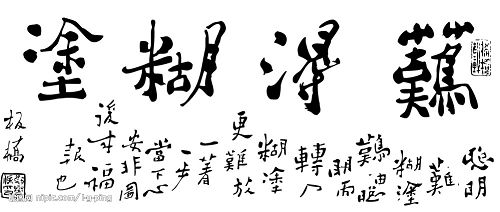 難得糊塗
聰明
難
糊塗
難由聰
明而
轉入
糊塗
更難放
一著
一步
當下心
安非圖
後來福
報也
板橋
nipic.com